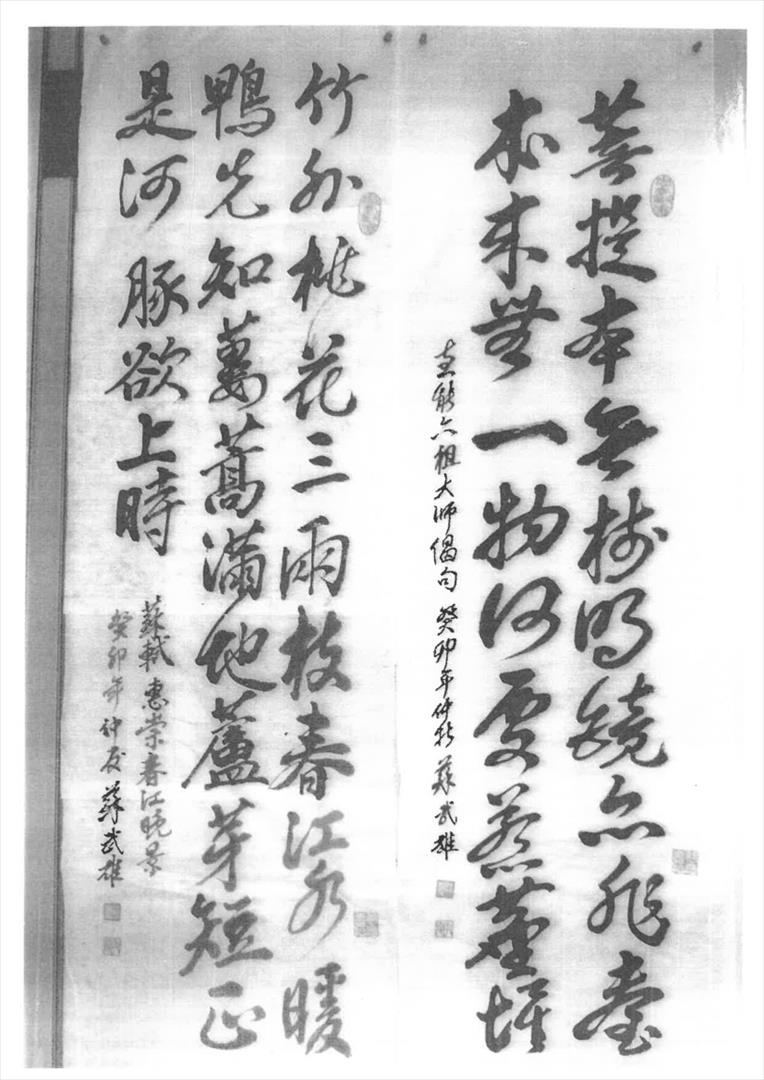 菩提本無樹明鏡亦非臺
本來無一物何處惹塵埃
惠能六祖大師偈句 癸卯年仲秋 蘇武雄
竹外桃花三兩枝春江水暖
鴨先知蔞蒿滿地蘆芽短正
是河豚欲上時
蘇軾 惠崇春江晚景
癸卯年仲夏 蘇武雄